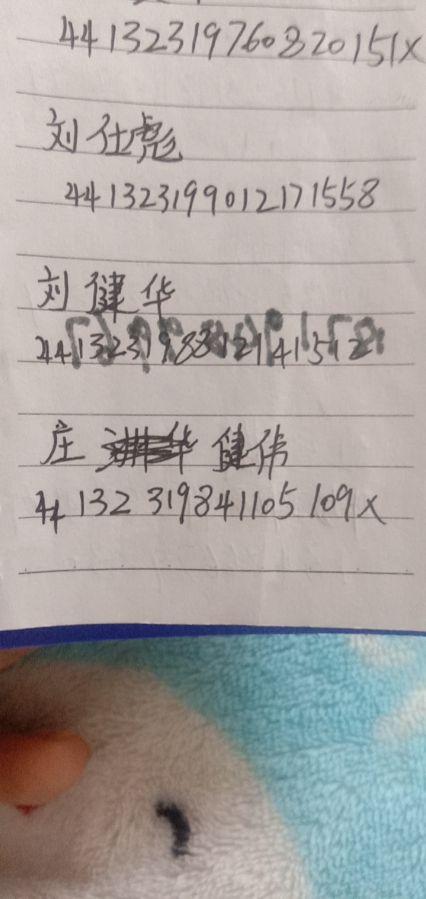 44132319760820151X
刘仕彪
441323199012171558
刘健华
庄健伟
44132319841105109X